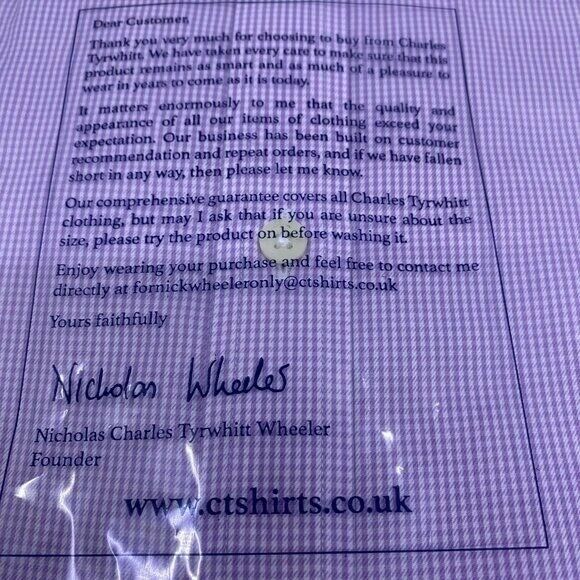 Dear Customer,
Thank you very much for choosing to buy from Charles
Tyrwhitt. We have taken every care to make sure that this
product remains as smart and as much of a pleasure to
wear in years to come as it is today.
It matters enormously to me that the quality and
appearance of all our items of clothing exceed your
expectation. Our business has been built on customer
recommendation and repeat orders, and if we have fallen
short in any way, then please let me know.
Our comprehensive guarantee covers all Charles Tyrwhitt
clothing, but may I ask that if you are unsure about the
size, please try the product on before washing it.
Enjoy wearing your purchase and feel free to contact me
directly at fornickwheeleronly@ctshirts.co.uk
Yours faithfully
Nicholas Wheeler
Nicholas Charles Tyrwhitt Wheeler
Founder
www.ctshirts.co.uk